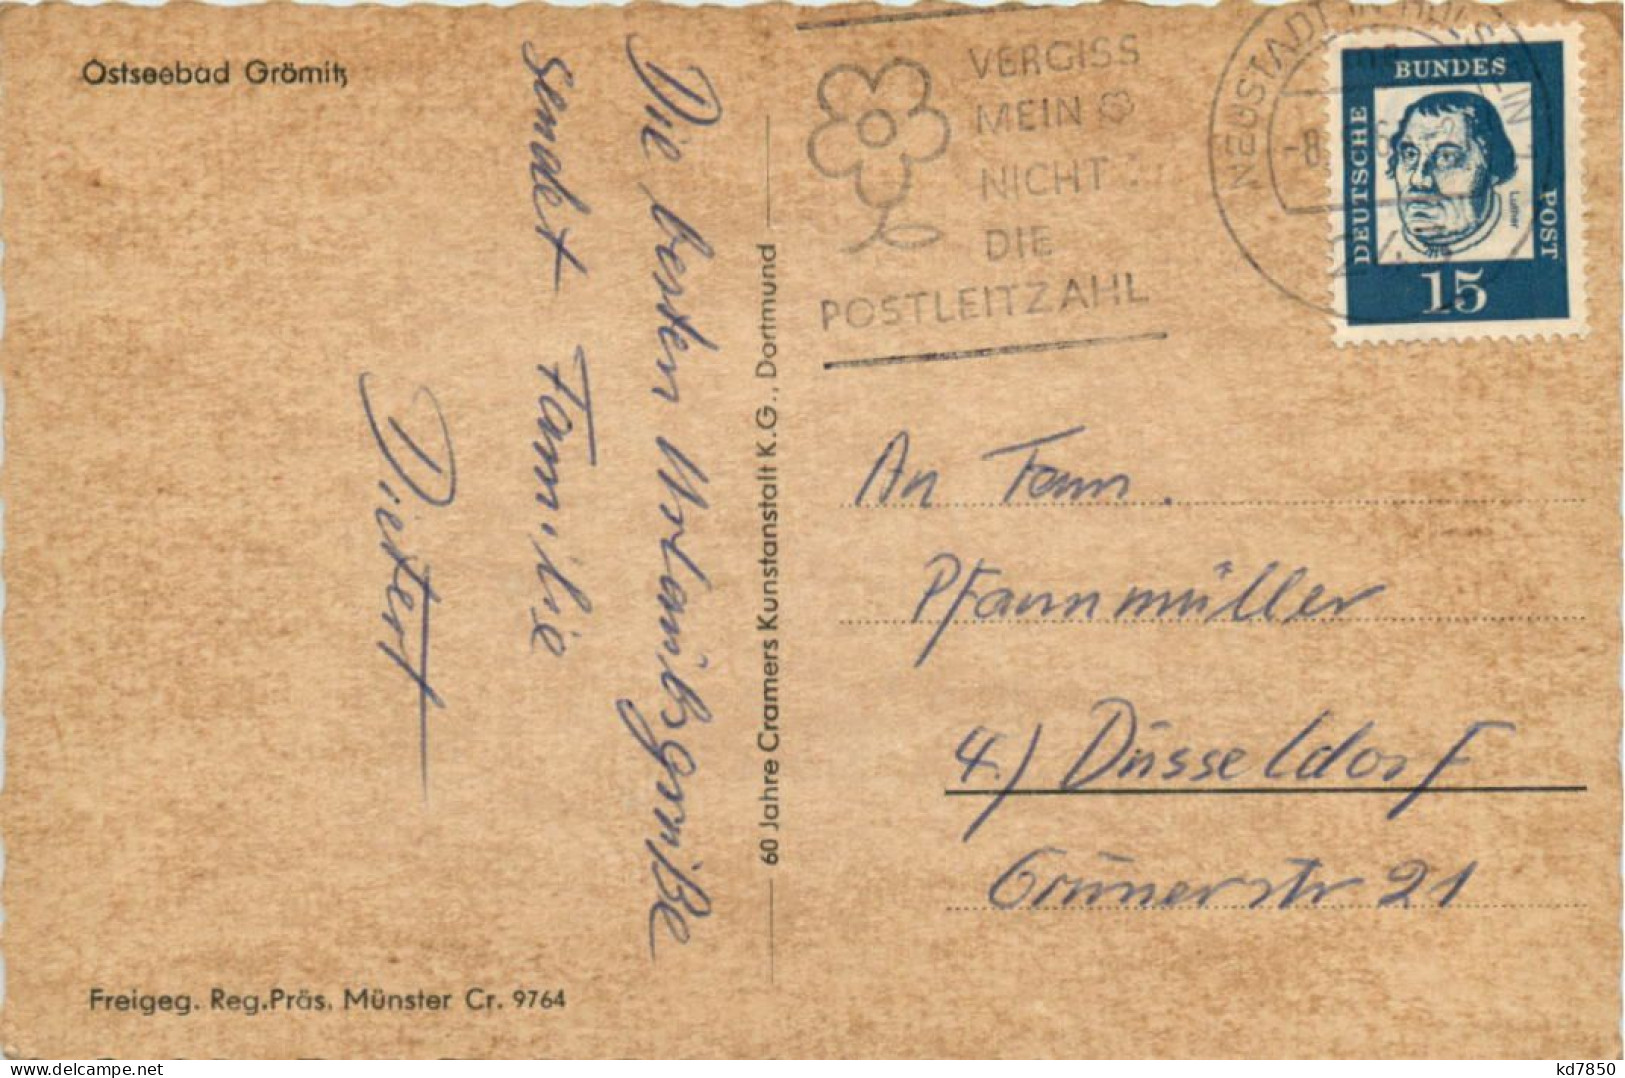 Ostseebad Grömitz
Die besten Urlaubsgrüße
sendet Familie
Dietert
60 Jahre Cramers Kunstanstalt K.G., Dortmund
Freigeg. Reg.Präs. Münster Cr. 9764
VERGISS
MEIN
NICHT
DIE
POSTLEITZAHL
NEUSTADT IN HOLSTEIN
-8.
DEUTSCHE
BUNDES
POST
Luther
15
An Fam.
Pfannmüller
4.) Düsseldorf
Grünerstr 21
kd7850